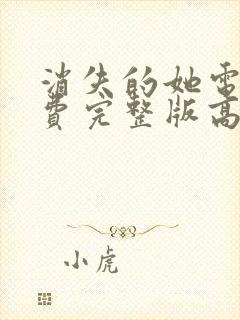 消失的她電
費完整版高
小虎